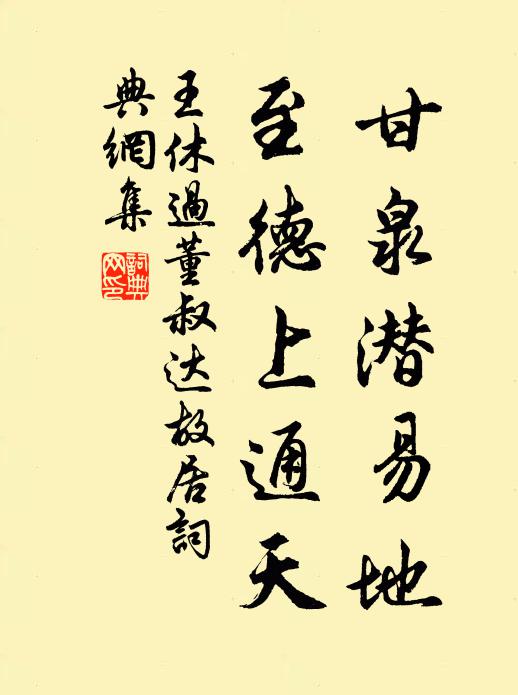 甘泉潜易地
至德上通天
王休過董叔达故居詞
典網集
詞典网印